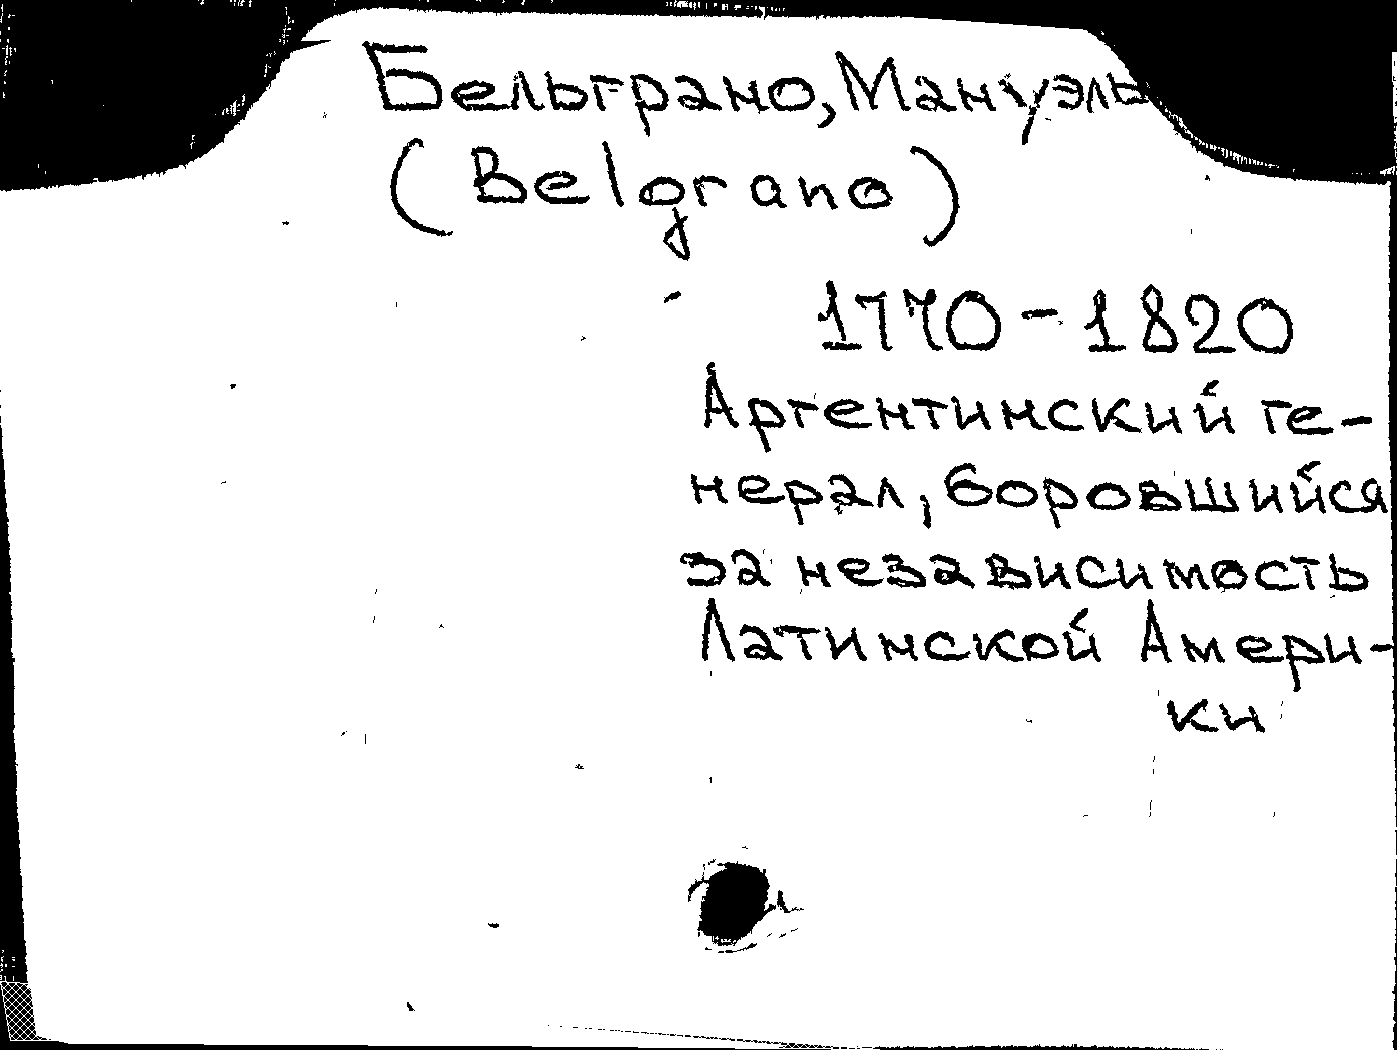 Бельграно, Мануэль
(Belgrano)
1770-1820
Аргентинский ге-
нерал, боровшийся
за независимость
Латинской Амери-
ки